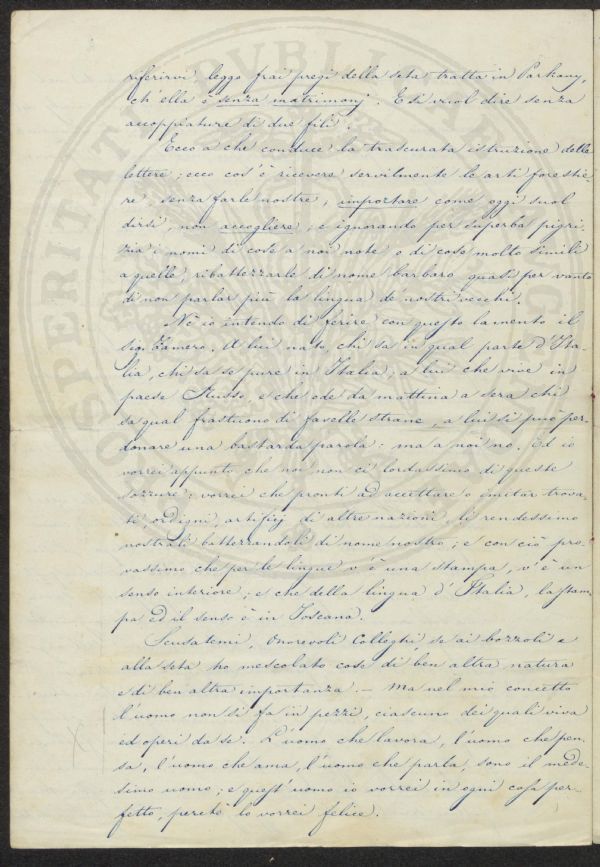 riferirvi, leggo frai pregi della seta tratta in Parkany,
ch'ella è senza matrimonj. E si vuol dire senza
accoppiature di due fili.
Ecco a che conduce la trascurata istruzione delle
lettere; ecco cos'è ricevere servilmente le arti forestie-
re senza farle nostre, importare come oggi suol
dirsi, non accogliere; e ignorando per superba pigri-
zia i nomi di cose a noi note o di cose molto simili
a quelle, ribattezzarle di nome barbaro quasi per vanto
di non parlar più la lingua de' nostri vecchi.
Nè io intendo di ferire con questo lamento il
sig. A lui nato, chi sa in qual parte d'Ita-
lia, chi sa se pure in Italia, a lui che vive in
paese Russo, e che ode da mattina a sera chi
sa qual frastuono di favelle strane, a lui si può per-
donare una bastarda parola: ma a noi no. Ed io
vorrei appunto che noi non ci lordassimo di queste
sozzure; vorrei che pronti ad accettare o imitar trova-
ti, ordigni, artifizj di altre nazioni, li rendessimo
nostrali battezzandoli di nome nostro; e con ciò pro-
vassimo che per le lingue v'è una stampa, v'è un
senso interiore; e che della lingua d'Italia, la stam-
pa ed il senso è in Toscana.
Scusatemi, Onorevoli Colleghi, se ai bozzoli e
alla seta ho mescolato cose di ben altra natura
e di ben altra importanza. — Ma nel mio concetto
l'uomo non si fa in pezzi, ciascuno dei quali viva
ed operi da se. L'uomo che lavora, l'uomo che pen-
sa, l'uomo che ama, l'uomo che parla, sono il mede-
simo uomo; e quest'uomo io vorrei in ogni cosa per-
fetto, perchè lo vorrei felice.